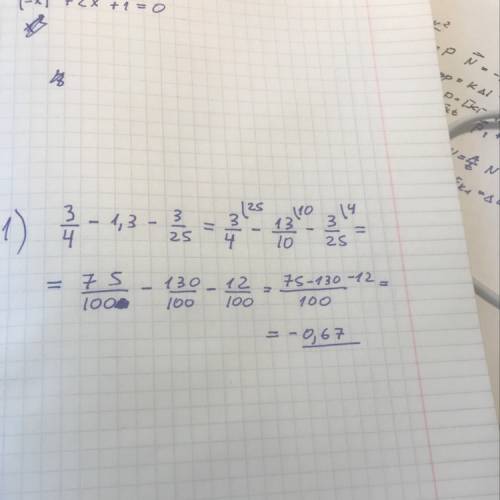 +2x +1=0
1) 3/4 − 1,3 − 3/25 = 3\25/4 − 13\10/10 − 3\4/25 =
= 75/100 − 130/100 − 12/100 = 75−130−12/100 =
= −0,67